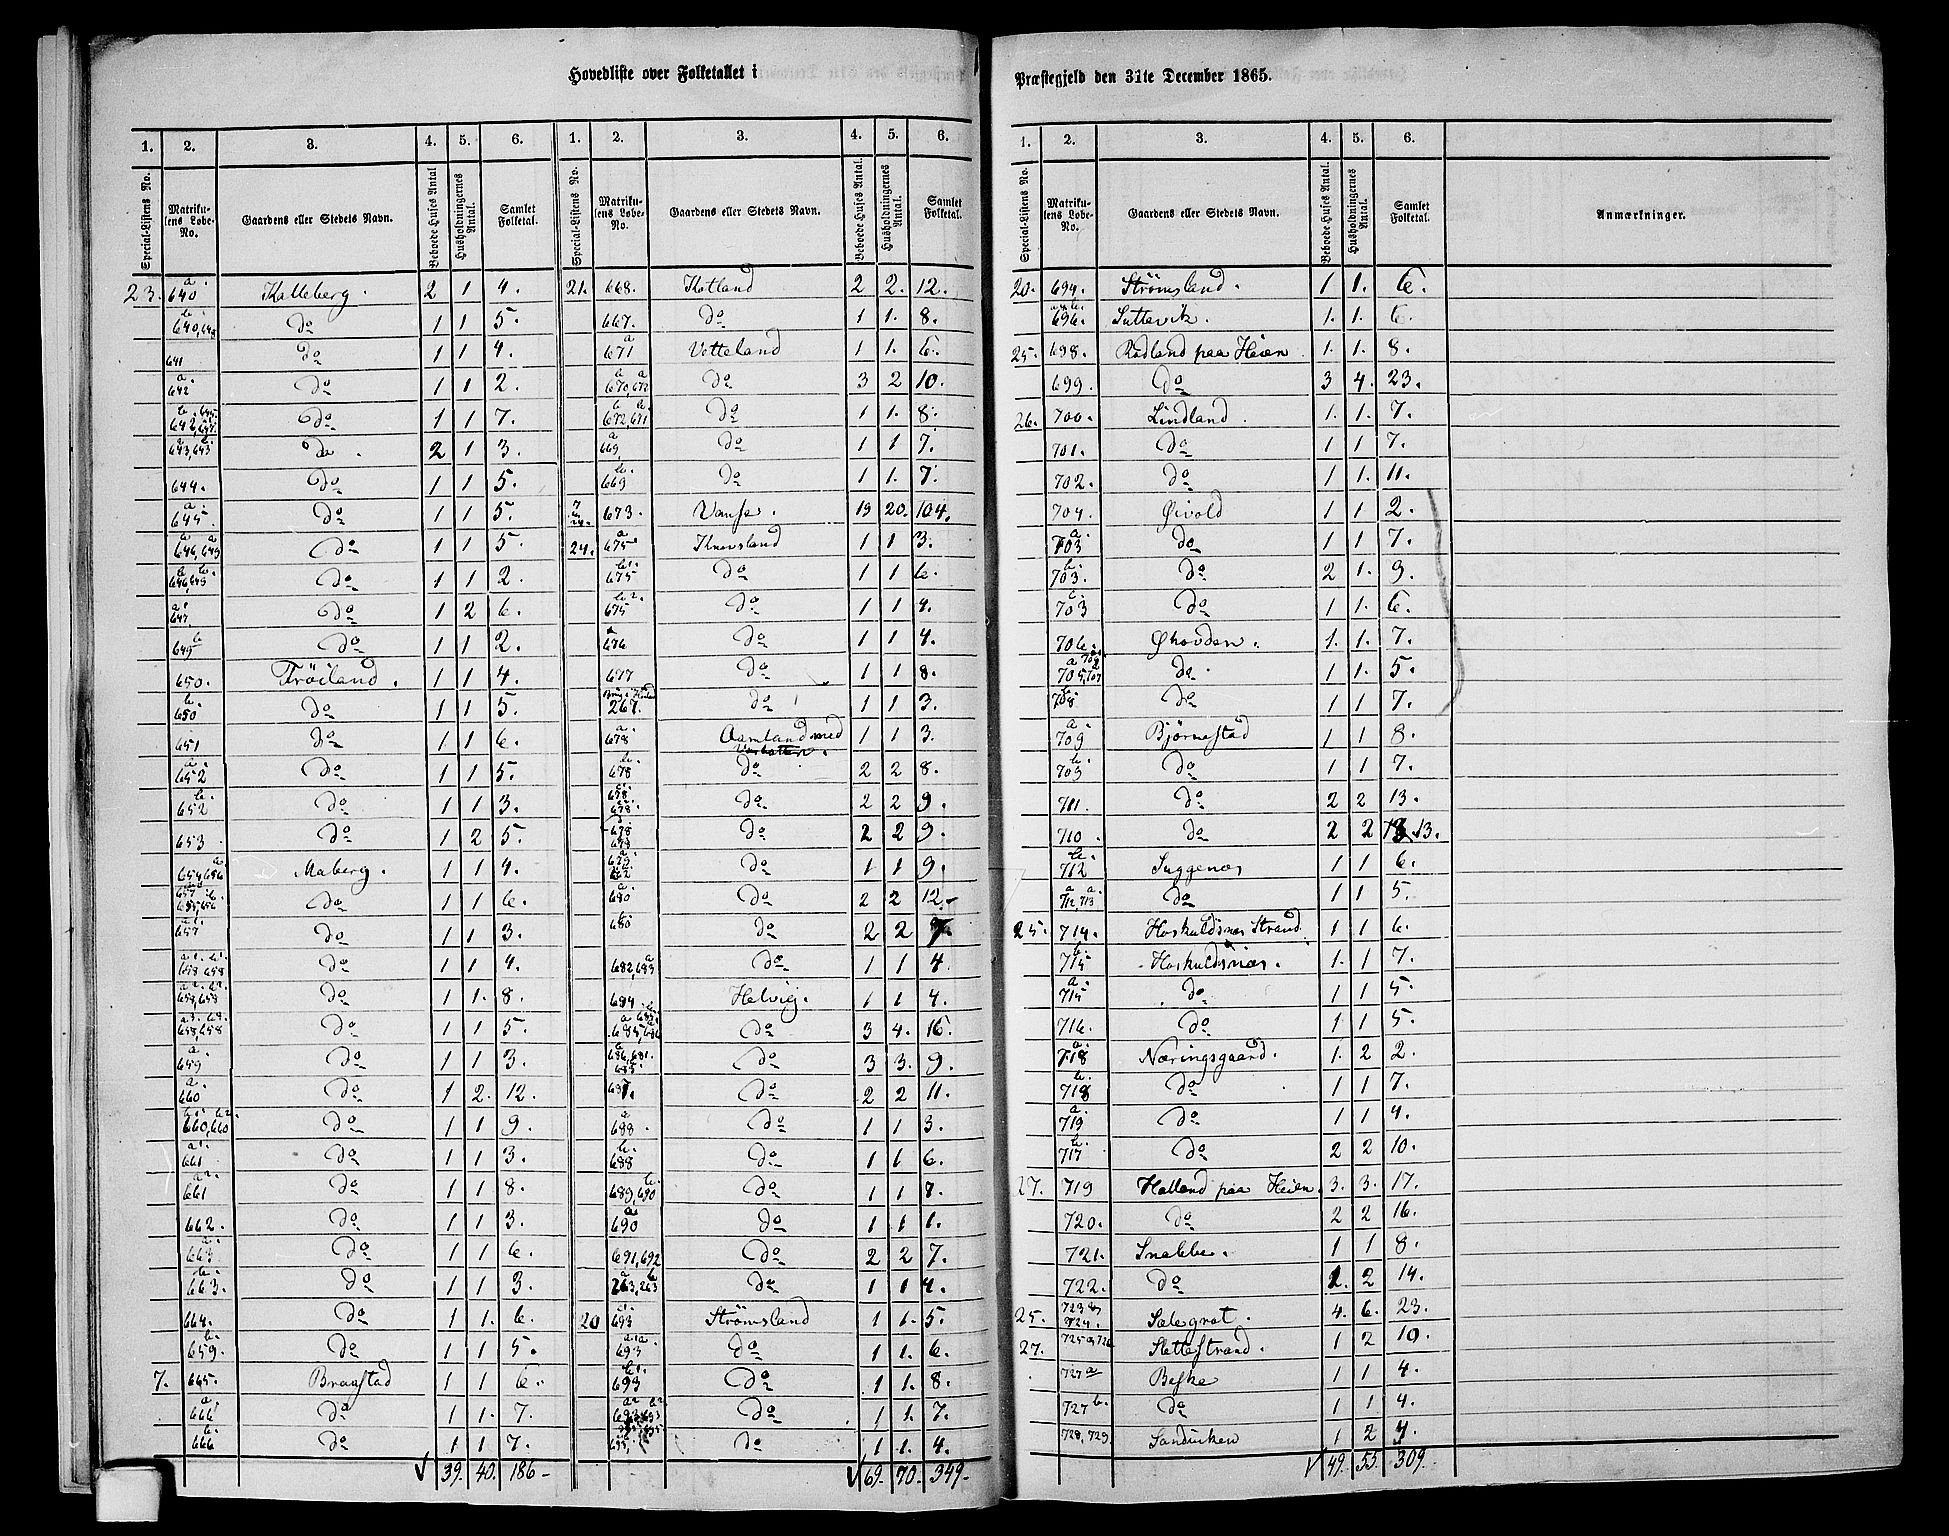 Hovedliste over Folketallet i
Præstegjeld den 31te December 1865.
1. 2. 3. 4. 5. 6. 1. 2. 3. 4. 5. 6.
Special-Listens No. Matrikulens Løbe-No. Gaardens eller Stedets Navn. Beboede Huses Antal. Husholdningernes Antal. Samlet Folketal. Special-Listens No. Matrikulens Løbe-No. Gaardens eller Stedets Navn. Beboede Huses Antal. Husholdningernes Antal. Samlet Folketal.
23. 640 a Kalleberg. 2 1 4.
640 b, 648 do 1 1 5.
641 do 1 1 4.
642 a do 1 1 2.
do 1 1 7.
do 2 1 3.
644. do 1 1 5.
645 a do 1 1 5.
646 a, 649 a do 1 1 5.
646 b, 649 b do 1 1 2.
647 a do 1 2 6.
649 b do 1 1 2.
650. Trøiland. 1 1 4.
650 b do 1 1 5.
651 do 1 1 6.
652 a do 1 1 5.
652 b do 1 1 3.
653 do 1 2 5.
Maberg. 1 1 4.
do 1 1 6.
657 do 1 1 3.
658 a1, 658 b1 do 1 1 4.
658, 658 do 1 1. 8.
658, 658 do 1 1 5.
659 a do 1 1 3.
660 a do 1 2. 12.
660 b1, 660 b2 do 1 1 9.
661 a1 do 1 1 3.
661 a2 do 1 1 8.
662. do 1 1 3.
663 a do 1 1 6.
663 b do 1 1 3.
664. do 1 1. 6.
659 b do 1 1 5.
7. 665. Braastad 1 1 6.
666 a do 1 1. 7.
666 b do 1 1 7.
39. 40. 186
21. 668. Kotland 2 2. 12.
667. do 1 1. 8.
671 a Votteland 1 1. 6.
670, 672 do 3 2 10.
672, 671 do 1 1. 8.
669 a do 1 1 7.
669 b do 1 1. 7.
673. Vanse. 19 20. 104.
24. 675 a 1 1 3.
675 b1 do 1 1 6.
675 b2 do 1 1 4.
676 do 1 1 4.
677 do 1 1 8.
267. do 1 1 3.
678 a Aamland med 1 1 3.
678 b do 2 2 8.
do 2 2 9.
do 2 2 9.
do 1 1 9.
680 a do 2 2 12.
680 b do 2 2
682, 683 a do 1 1 4
684. Helvig. 1 1 4.
do 3 4. 16.
do 3 3. 9.
do 2 2 11.
688 a do 1 1 3.
688 b do 1 1 6.
689, 690 b do 1 1 7.
690 a do 1 1 1.
691, 692 do 2 2 7.
263 a, 263 b do 1 1 4.
20 693 Strømsland 1 1. 5.
693 do 1 1. 6.
693 b1 do 1 1. 8.
693, 693 do 1 1. 7.
do 1 1. 4.
69. 70. 349.
1. 2. 3. 4. 5. 6.
Special-Listens No. Matrikulens Løbe-No. Gaardens eller Stedets Navn. Beboede Huses Antal. Husholdningernes Antal. Samlet Folketal. Anmærkninger.
20. 694. Strømsland. 1 1. 6.
696. Suttevik. 1. 1. 6.
25. 698. Rødland paa Heien 1. 1. 8.
699. do 3 4. 23.
26. 700. Lindland. 1. 1. 7.
701. do 1 1 7.
702. do 1 1. 11.
704. Øivold 1 1 2.
703 a do 1 1 7.
703 b do 2 1. 9.
703 c do 1 1. 6.
706. Øhovden. 1. 1. 7.
do. 1 1. 5.
708 b do 1 1. 7.
709 a Bjørnestad 1 1 8.
709 b do 1 1 7.
711. do 2 2 13.
710. do 2 2 13.
712 b Suggenæs 1 1 6.
712 a, 713 a do 1 1 5.
25. 714. Haskuldsnæs Strand 1 1 6.
715 b Haskuldsnæs. 1. 1 7.
715 a do 1 1 5.
716. do 1 1 5.
718 a Næringsgaard. 1. 2 2.
718 b do 1 1 7.
719 a do 1 1 4.
717 b do 2 2 10.
27. 719 Halland paa Heien. 3. 3. 17.
720. do 2 2 16.
721. Snekke. 1 1 8.
722. do 2 14.
25. 723 & 724. Salegrot. 4. 6. 23.
27. 725 & 726 Slettestrand. 1 2 10.
727 a Beske 1 1 4.
727 b do 1 1 4.
728, 729. Sandviken 1 2 4.
49. 55. 309.